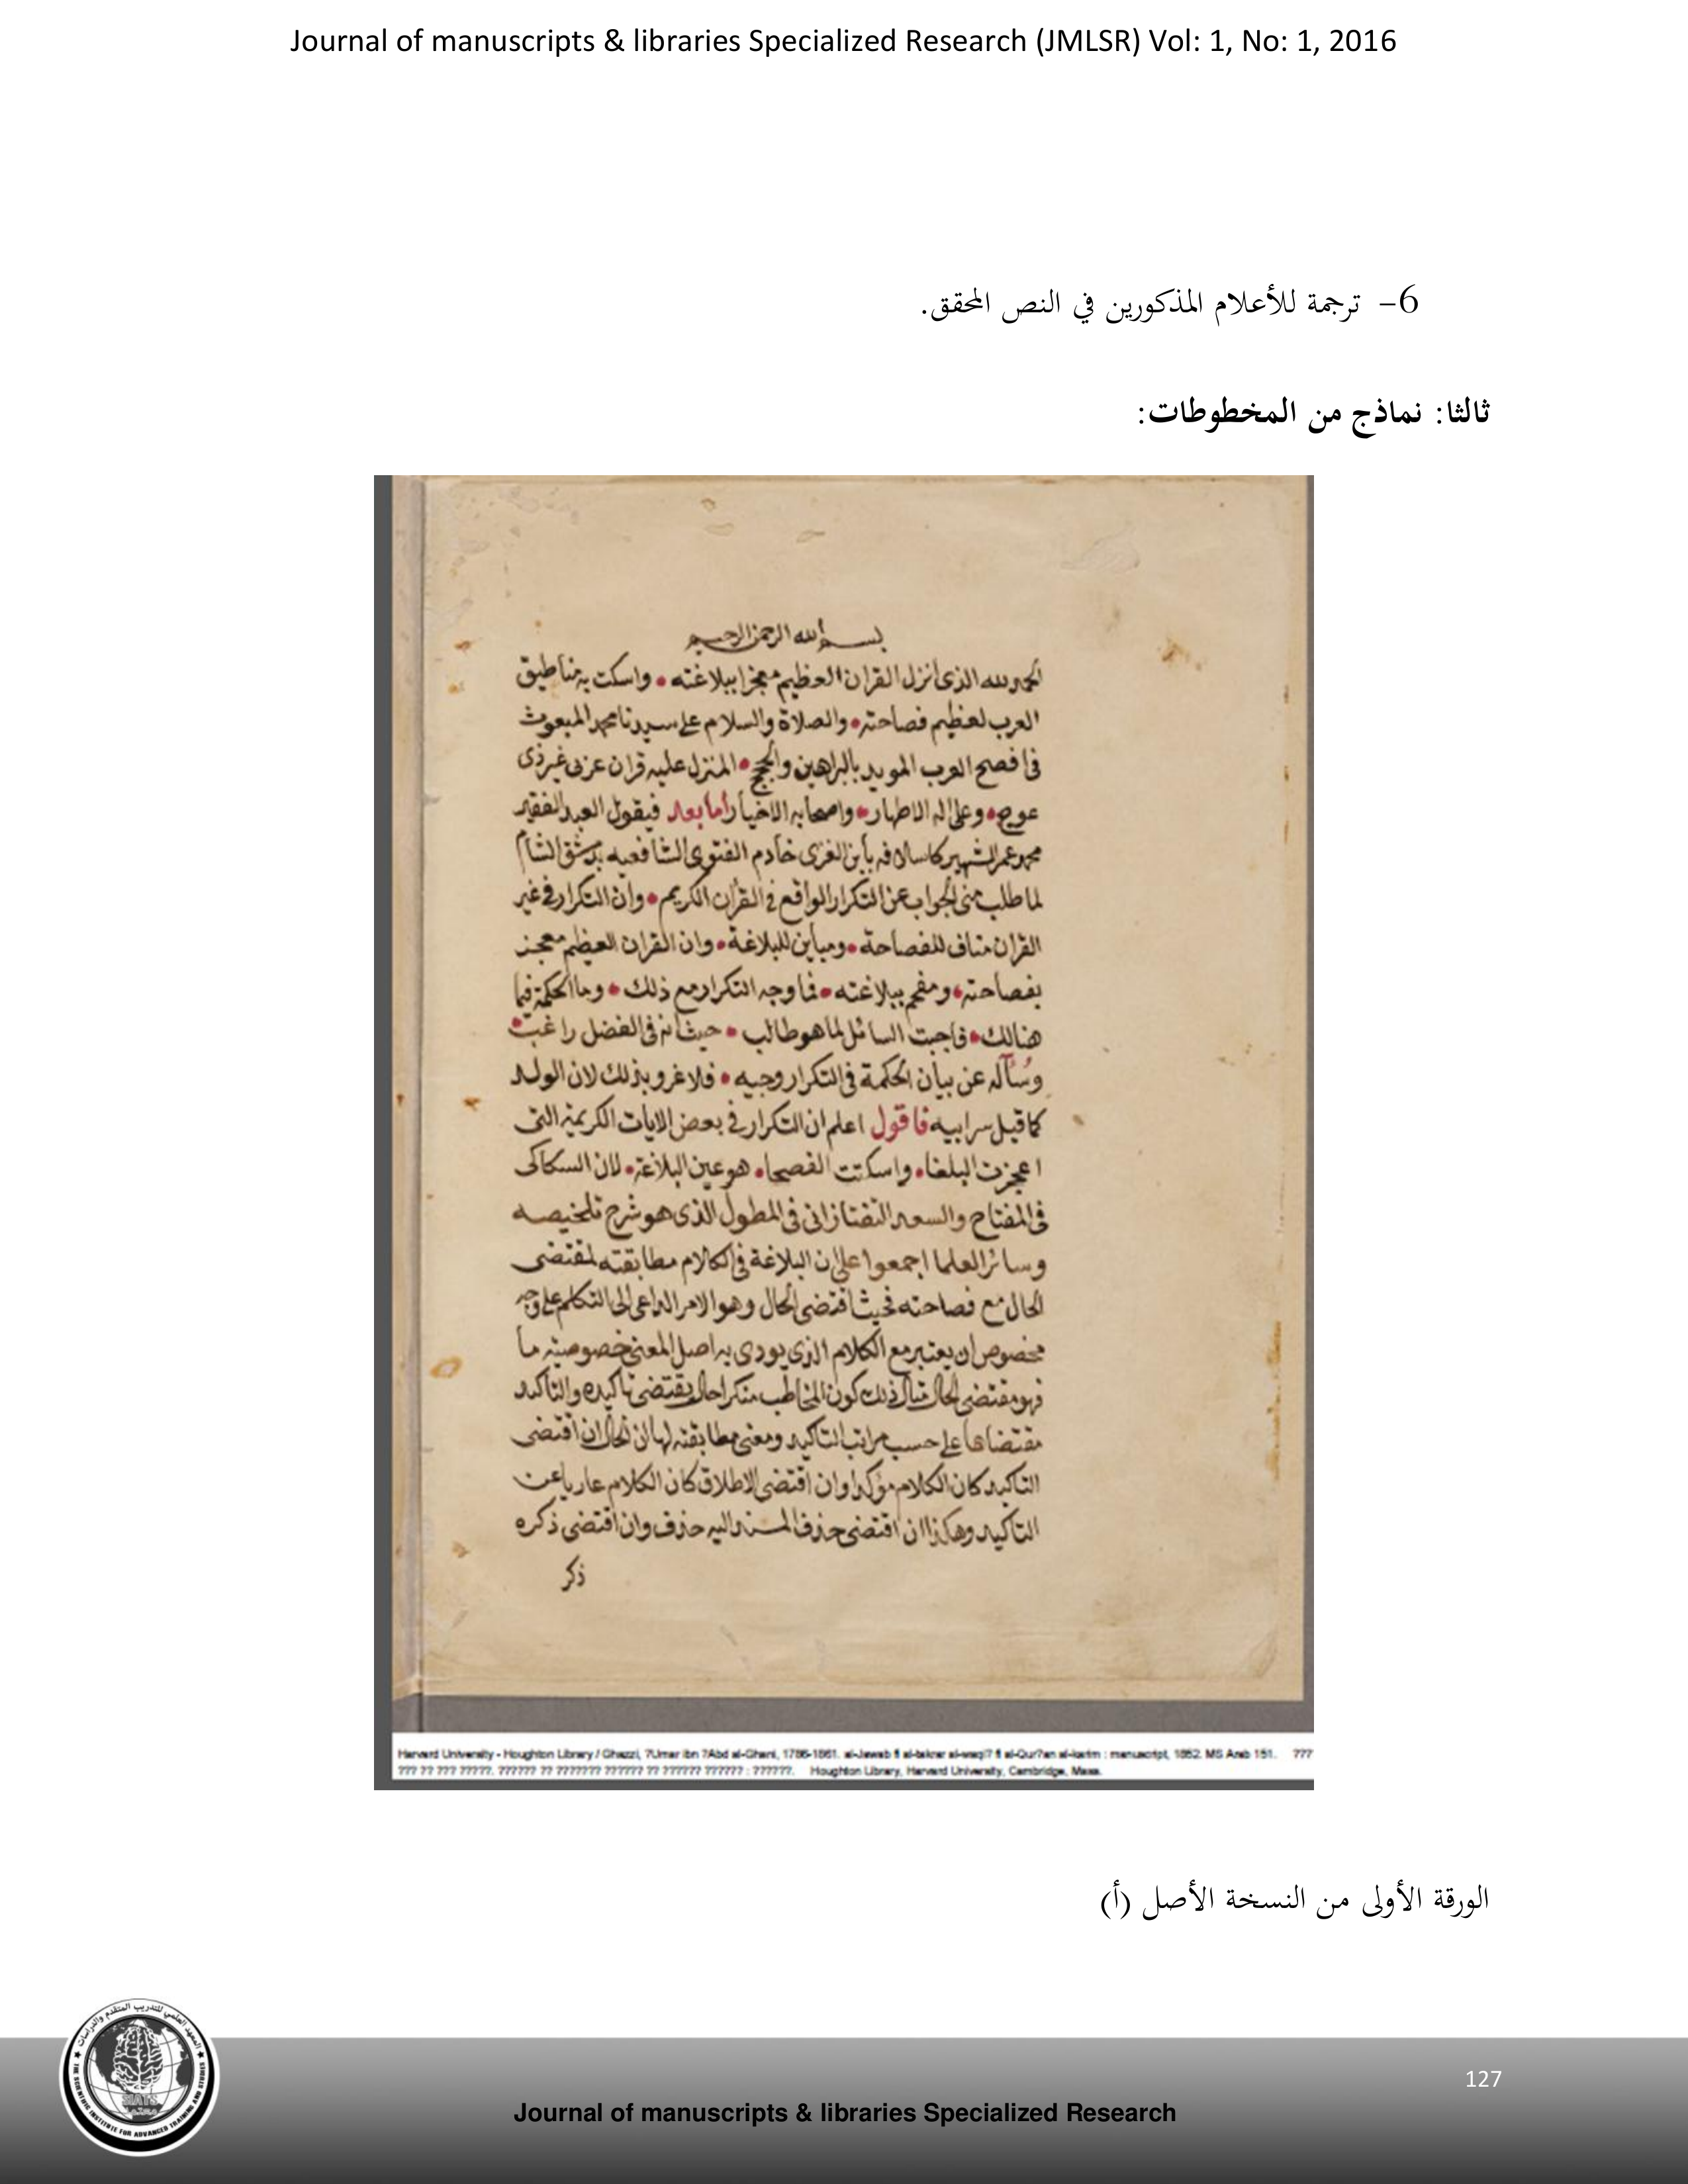 Journal of manuscripts & libraries Specialized Research (JMLSR) Vol: 1, No: 1, 2016
6- ترجمة للأعلام المذكورين في النص المحقق.
ثالثا: نماذج من المخطوطات:
بسم الله الرحمن الرحيم
الحمد لله الذي انزل القران العظيم معجزا ببلاغته • واسكت به مناطيق
العرب لعظيم فصاحته • والصلاة والسلام على سيدنا محمد المبعوث
في افصح العرب المويد بالبراهين والحجج • المنزل عليه قران عربي غير ذي
عوج • وعلى اله الاطهار • واصحابه الاخيار أما بعد فيقول العبد الفقير
محمد عمر الشهير كاسلافه بابن الغزي خادم الفتوى الشافعيه بدمشق الشام
لما طلب مني الجواب عن التكرار الواقع في القران الكريم • وان التكرار في غير
القران مناف للفصاحة • ومباين للبلاغة • وان القران العظيم معجز
بفصاحته • ومفحم ببلاغته • فما وجه التكرار مع ذلك • وما الحكمة فيما
هنالك • فاجبت السائل لما هو طالب • حيث انه في الفضل راغب •
وسآله عن بيان الحكمة في التكرار وجيه • فلا غرو بذلك لان الولد
كما قيل سر ابيه فاقول اعلم ان التكرار في بعض الايات الكريمة التي
اعجزت البلغا • واسكتت الفصحا • هو عين البلاغة • لان السكاكي
في المفتاح والسعد التفتازاني في المطول الذي هو شرح تلخيصه
وسائر العلما اجمعوا على ان البلاغة في الكلام مطابقته لمقتضى
الحال مع فصاحته فحيث اقتضى الحال وهو الامر الداعي الى التكلم على وجه
مخصوص ان يعتبر مع الكلام الذي يودى به اصل المعنى خصوصية ما
فهو مقتضى الحال مثال ذلك كون المخاطب منكرا حال يقتضي تاكيده والتاكيد
مقتضاها على حسب مراتب التاكيد ومعنى مطابقته لها ان الحال ان اقتضى
التاكيد كان الكلام مؤكدا وان اقتضى الاطلاق كان الكلام عاريا عن
التاكيد وهكذا ان اقتضى حذف المسند اليه حذف وان اقتضى ذكره
ذكر
Harvard University - Houghton Library / Ghazzi, ?Umar ibn ?Abd al-Ghani, 1786-1861. al-Jawab fi al-takrar al-waqi? fi al-Qur?an al-karim : manuscript, 1852. MS Arab 151. ???
??? ?? ??? ?????. ?????? ?? ??????? ?????? ?? ?????? ?????? : ??????. Houghton Library, Harvard University, Cambridge, Mass.
الورقة الأولى من النسخة الأصل (أ)
المعهد العلمي للتدريب المتقدم والدراسات
SIATS
THE SCIENTIFIC INSTITUTE FOR ADVANCED TRAINING AND STUDIES
127
Journal of manuscripts & libraries Specialized Research